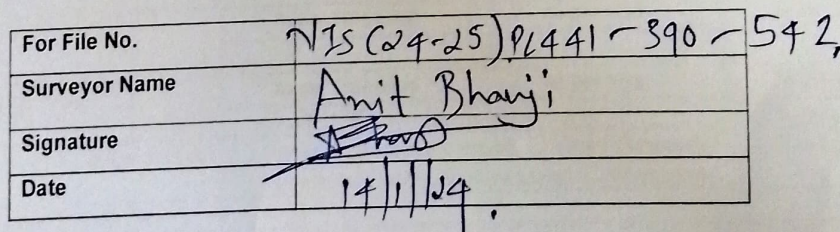 For File No. VIS (24-25) PL441-390-542
Surveyor Name Anit Bhanji
Signature
Date 14/1/24.